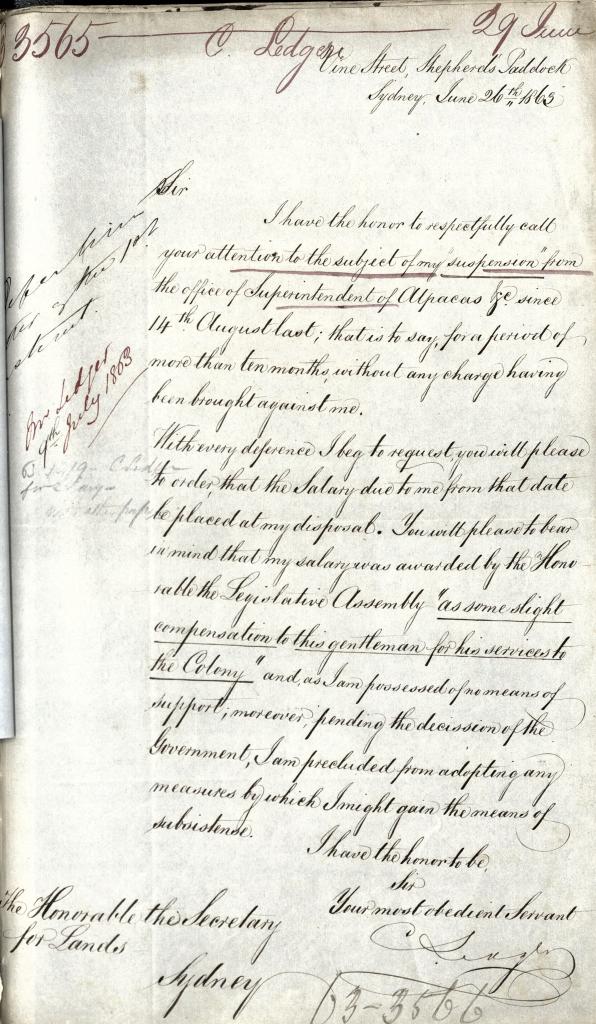 3565 C. Ledger 29 June
Vine Street, Shepherd's Paddock
Sydney, June 26th 1863
Sir
I have the honor to respectfully call
your attention to the subject of my "suspension" from
the office of Superintendent of Alpacas &c. since
14th August last; that is to say, for a period of
more than ten months, without any charge having
been brought against me.
With every diference I beg to request, you will please
to order that the Salary due to me from that date
be placed at my disposal. You will please to bear
in mind that my salary was awarded by the Hono-
rable the Legislative Assembly "as some slight
compensation to this gentleman for his services to
the Colony" and, as I am possessed of no means of
support; moreover, pending the decission of the
Government, I am precluded from adopting any
measures by which I might gain the means of
subsistense.
I have the honor to be,
Sir
Your most obedient Servant
C Ledger
The Honorable the Secretary
for Lands
Sydney
Refer him
of the 1st
Mr Ledger
9th July 1863
63-3566